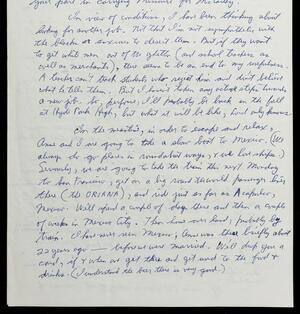 your part in carrying Missouri for McCarthy.
In view of conditions, I have been thinking about
looking for another job. Not that I'm not sympathetic with
the blacks or anxious to desert them. But if they want
to get white men out of the ghetto (and school teachers, as
well as merchants), there seems to be an end to my usefulness.
A teacher can't teach students who reject him and don't believe
what he tells them. But I haven't taken any active steps towards
a new job. So, perforce, I'll probably be back in the fall
at Hyde Park High; but what it will be like, Lord only knows.
In the meantime, in order to escape and relax,
Anne and I are going to take a slow boat to Mexico. (We
always do go places in roundabout ways, & we love ships.)
Seriously, we are going to take the train this next Monday
to San Francisco, get on a big round the world passenger ship
there (the ORIANA), and ride just as far as Acapulco,
Mexico. We'll spend a couple of days there and then a couple
of weeks in Mexico City. Then home over land, probably by
train. I have never seen Mexico; Anne was there briefly about
22 years ago — before we were married. We'll drop you a
card, if & when we get there and get used to the food &
drinks. (I understand the beer there is very good.)